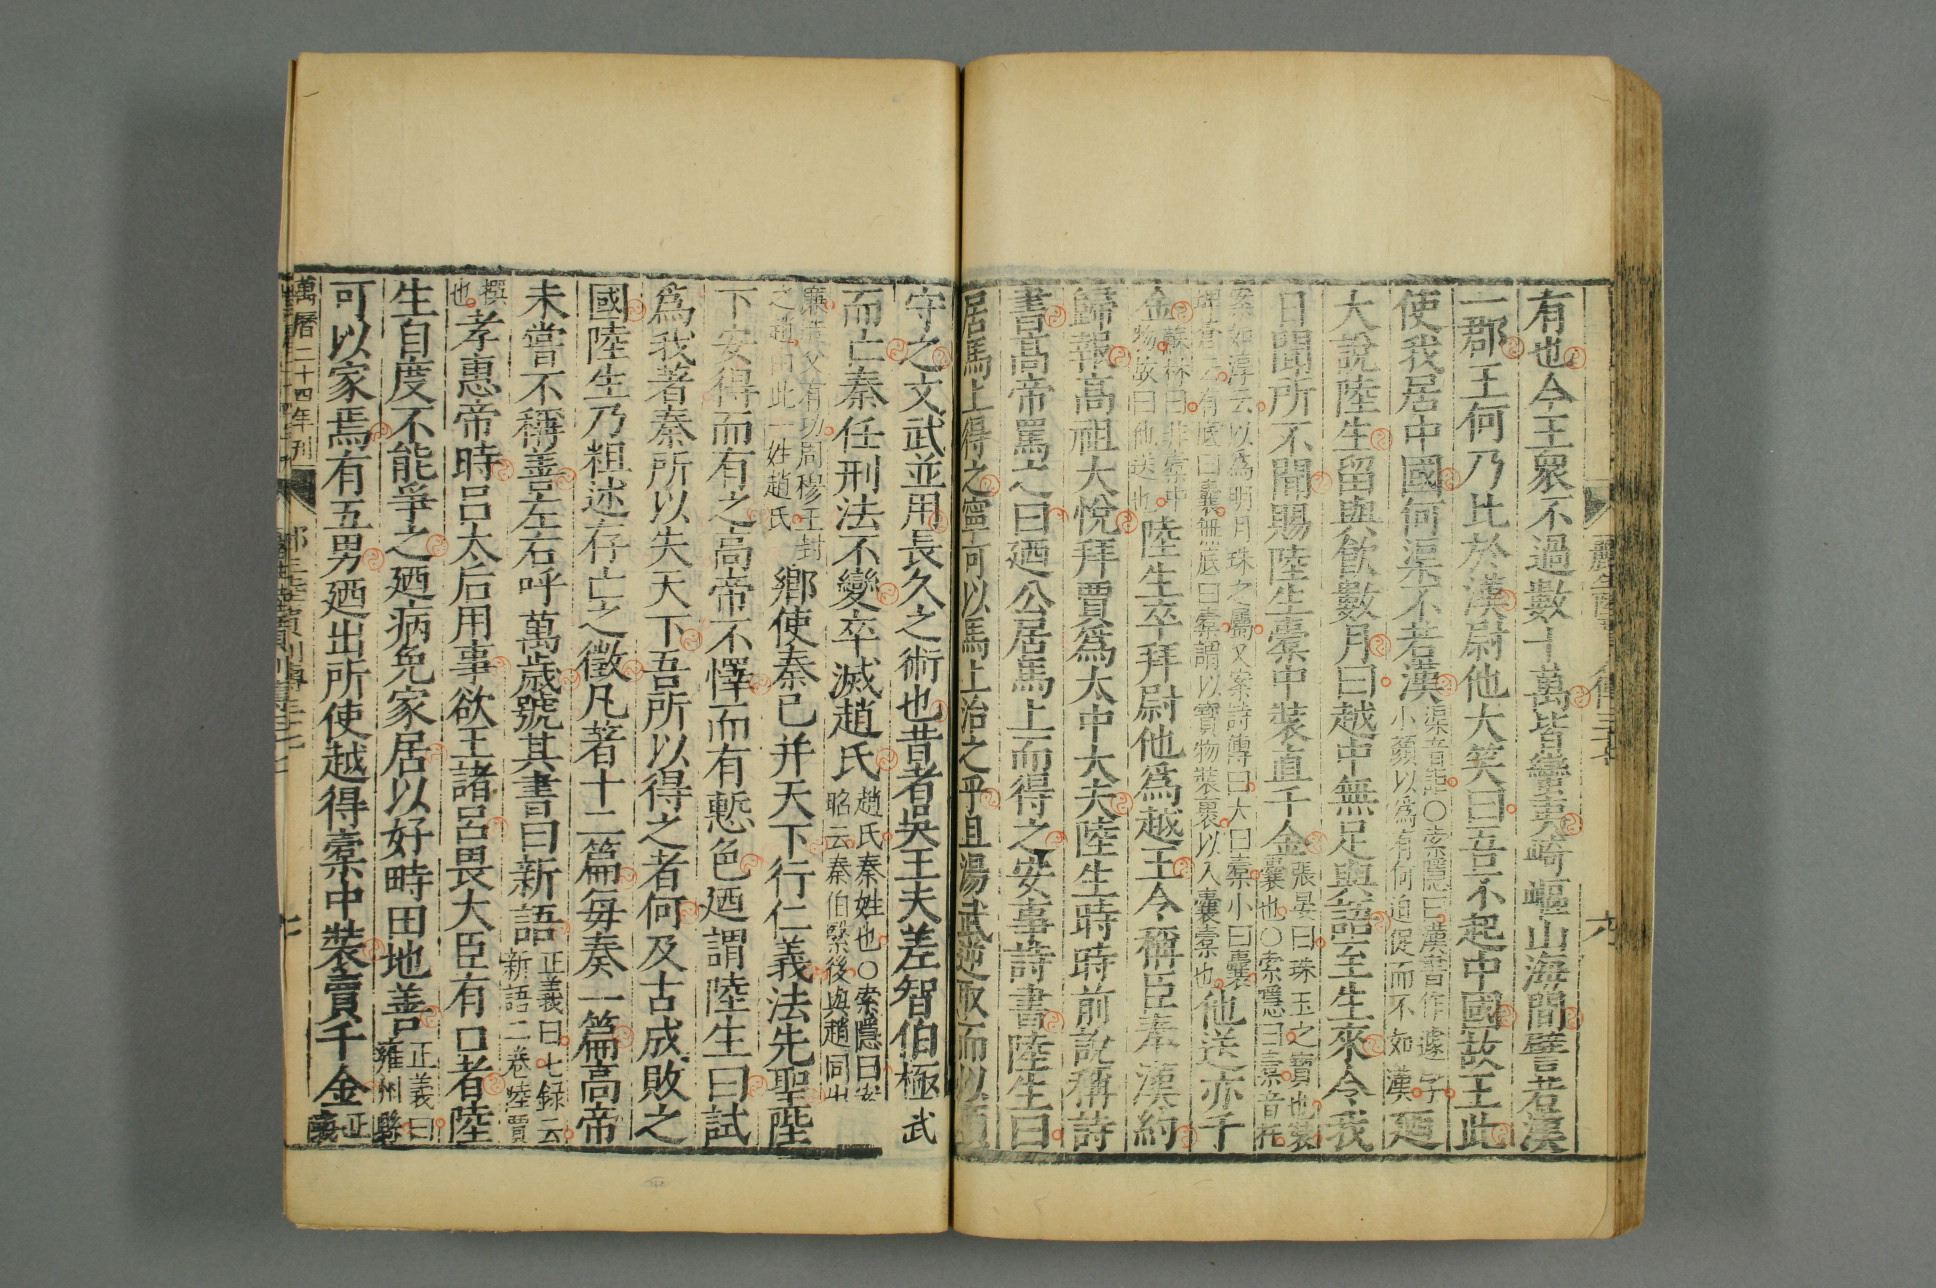 有也今王衆不過數十萬皆蠻夷崎嶇山海間譬若漢
一郡王何乃比於漢尉他大笑曰吾不起中國故王此
使我居中國何渠不若漢渠音詎○索隱曰漢書作遽字小顏以爲有何迫促而不如漢廼
大說陸生留與飲數月曰越中無足與語至生來令我
日聞所不聞賜陸生橐中裝直千金張晏曰珠玉之寶也裝囊也○索隱曰橐音托
案如淳云以爲明月珠之屬又案詩傳曰大曰橐小曰囊
有底曰囊無底曰橐謂以寶物裝裹以入囊橐也他送亦千
金蘇林曰非橐中物故曰他送也陸生卒拜尉他爲越王令稱臣奉漢約
歸報高祖大悅拜賈爲太中大夫陸生時時前說稱詩
書高帝罵之曰廼公居馬上而得之安事詩書陸生曰
居馬上得之寧可以馬上治之乎且湯武逆取而以順
守之文武並用長久之術也昔者吳王夫差智伯極武
而亡秦任刑法不變卒滅趙氏趙氏秦姓也○索隱曰案昭云秦伯繄後與趙同出
廉造父有功周穆王封之趙由此一姓趙氏鄉使秦已并天下行仁義法先聖陛
下安得而有之高帝不懌而有慙色廼謂陸生曰試
爲我著秦所以失天下吾所以得之者何及古成敗之
國陸生乃粗述存亡之徵凡著十二篇每奏一篇高帝
未嘗不稱善左右呼萬歲號其書曰新語正義曰七録云新語二卷陸賈
撰也孝惠帝時呂太后用事欲王諸呂畏大臣有口者陸
生自度不能爭之廼病免家居以好畤田地善正義曰雍州縣
可以家焉有五男廼出所使越得橐中裝賣千金正義
萬曆二十四年刊
七